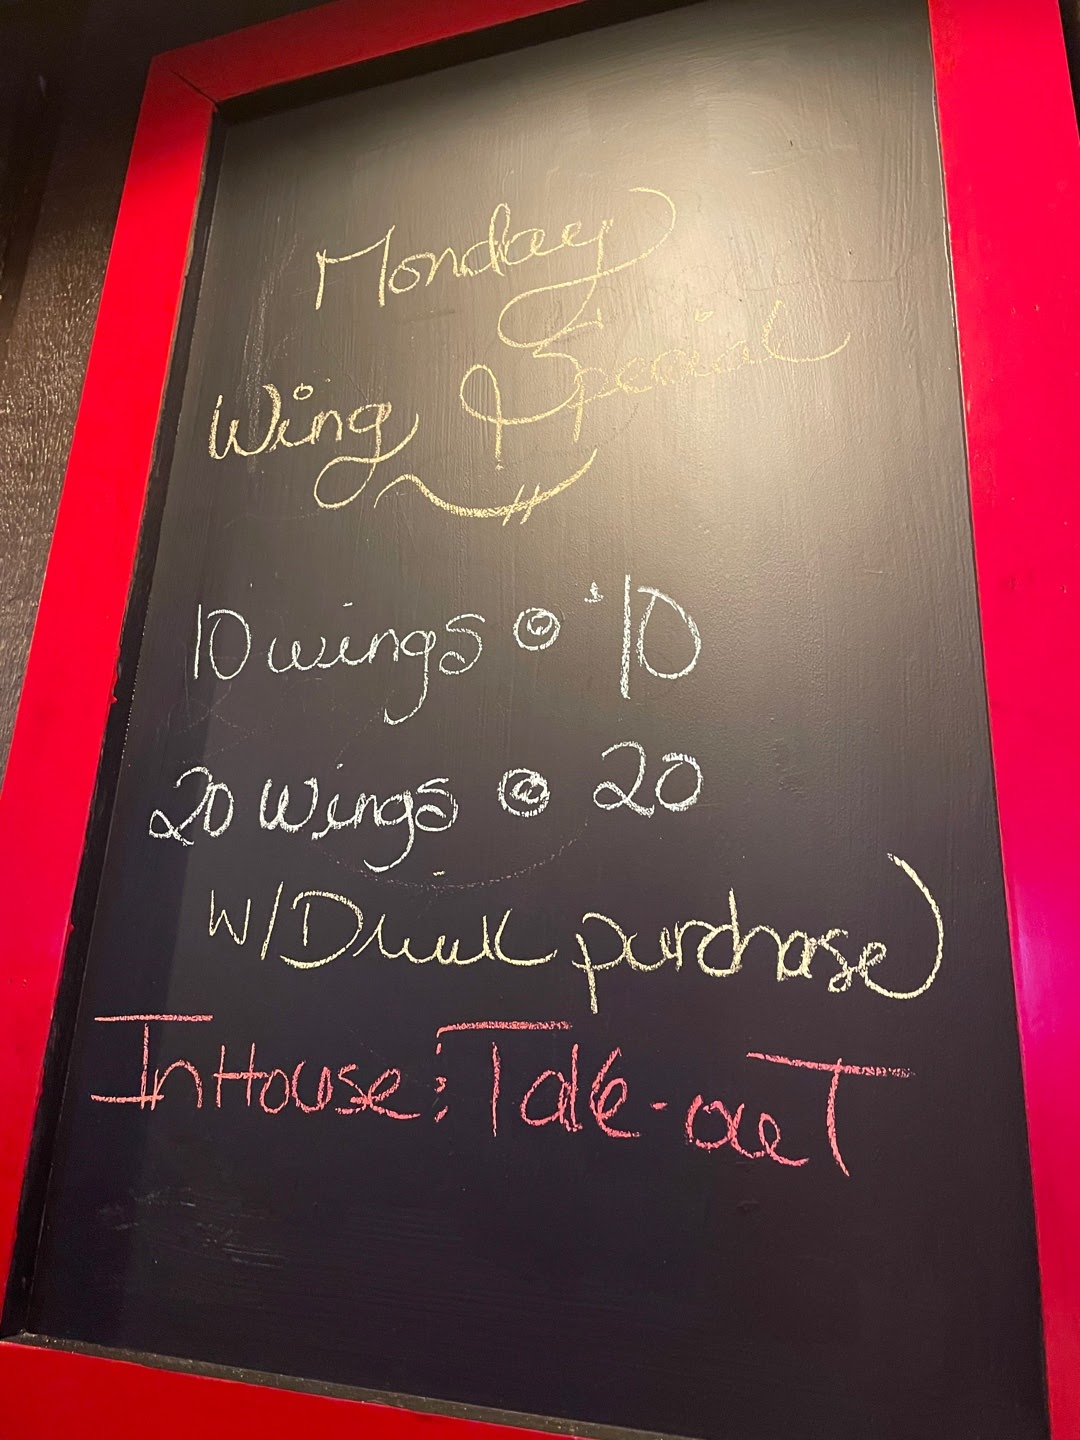 Monday
Wing Special
10 wings @ $10
20 wings @ 20
W/Drink purchase)
In House: Take-out